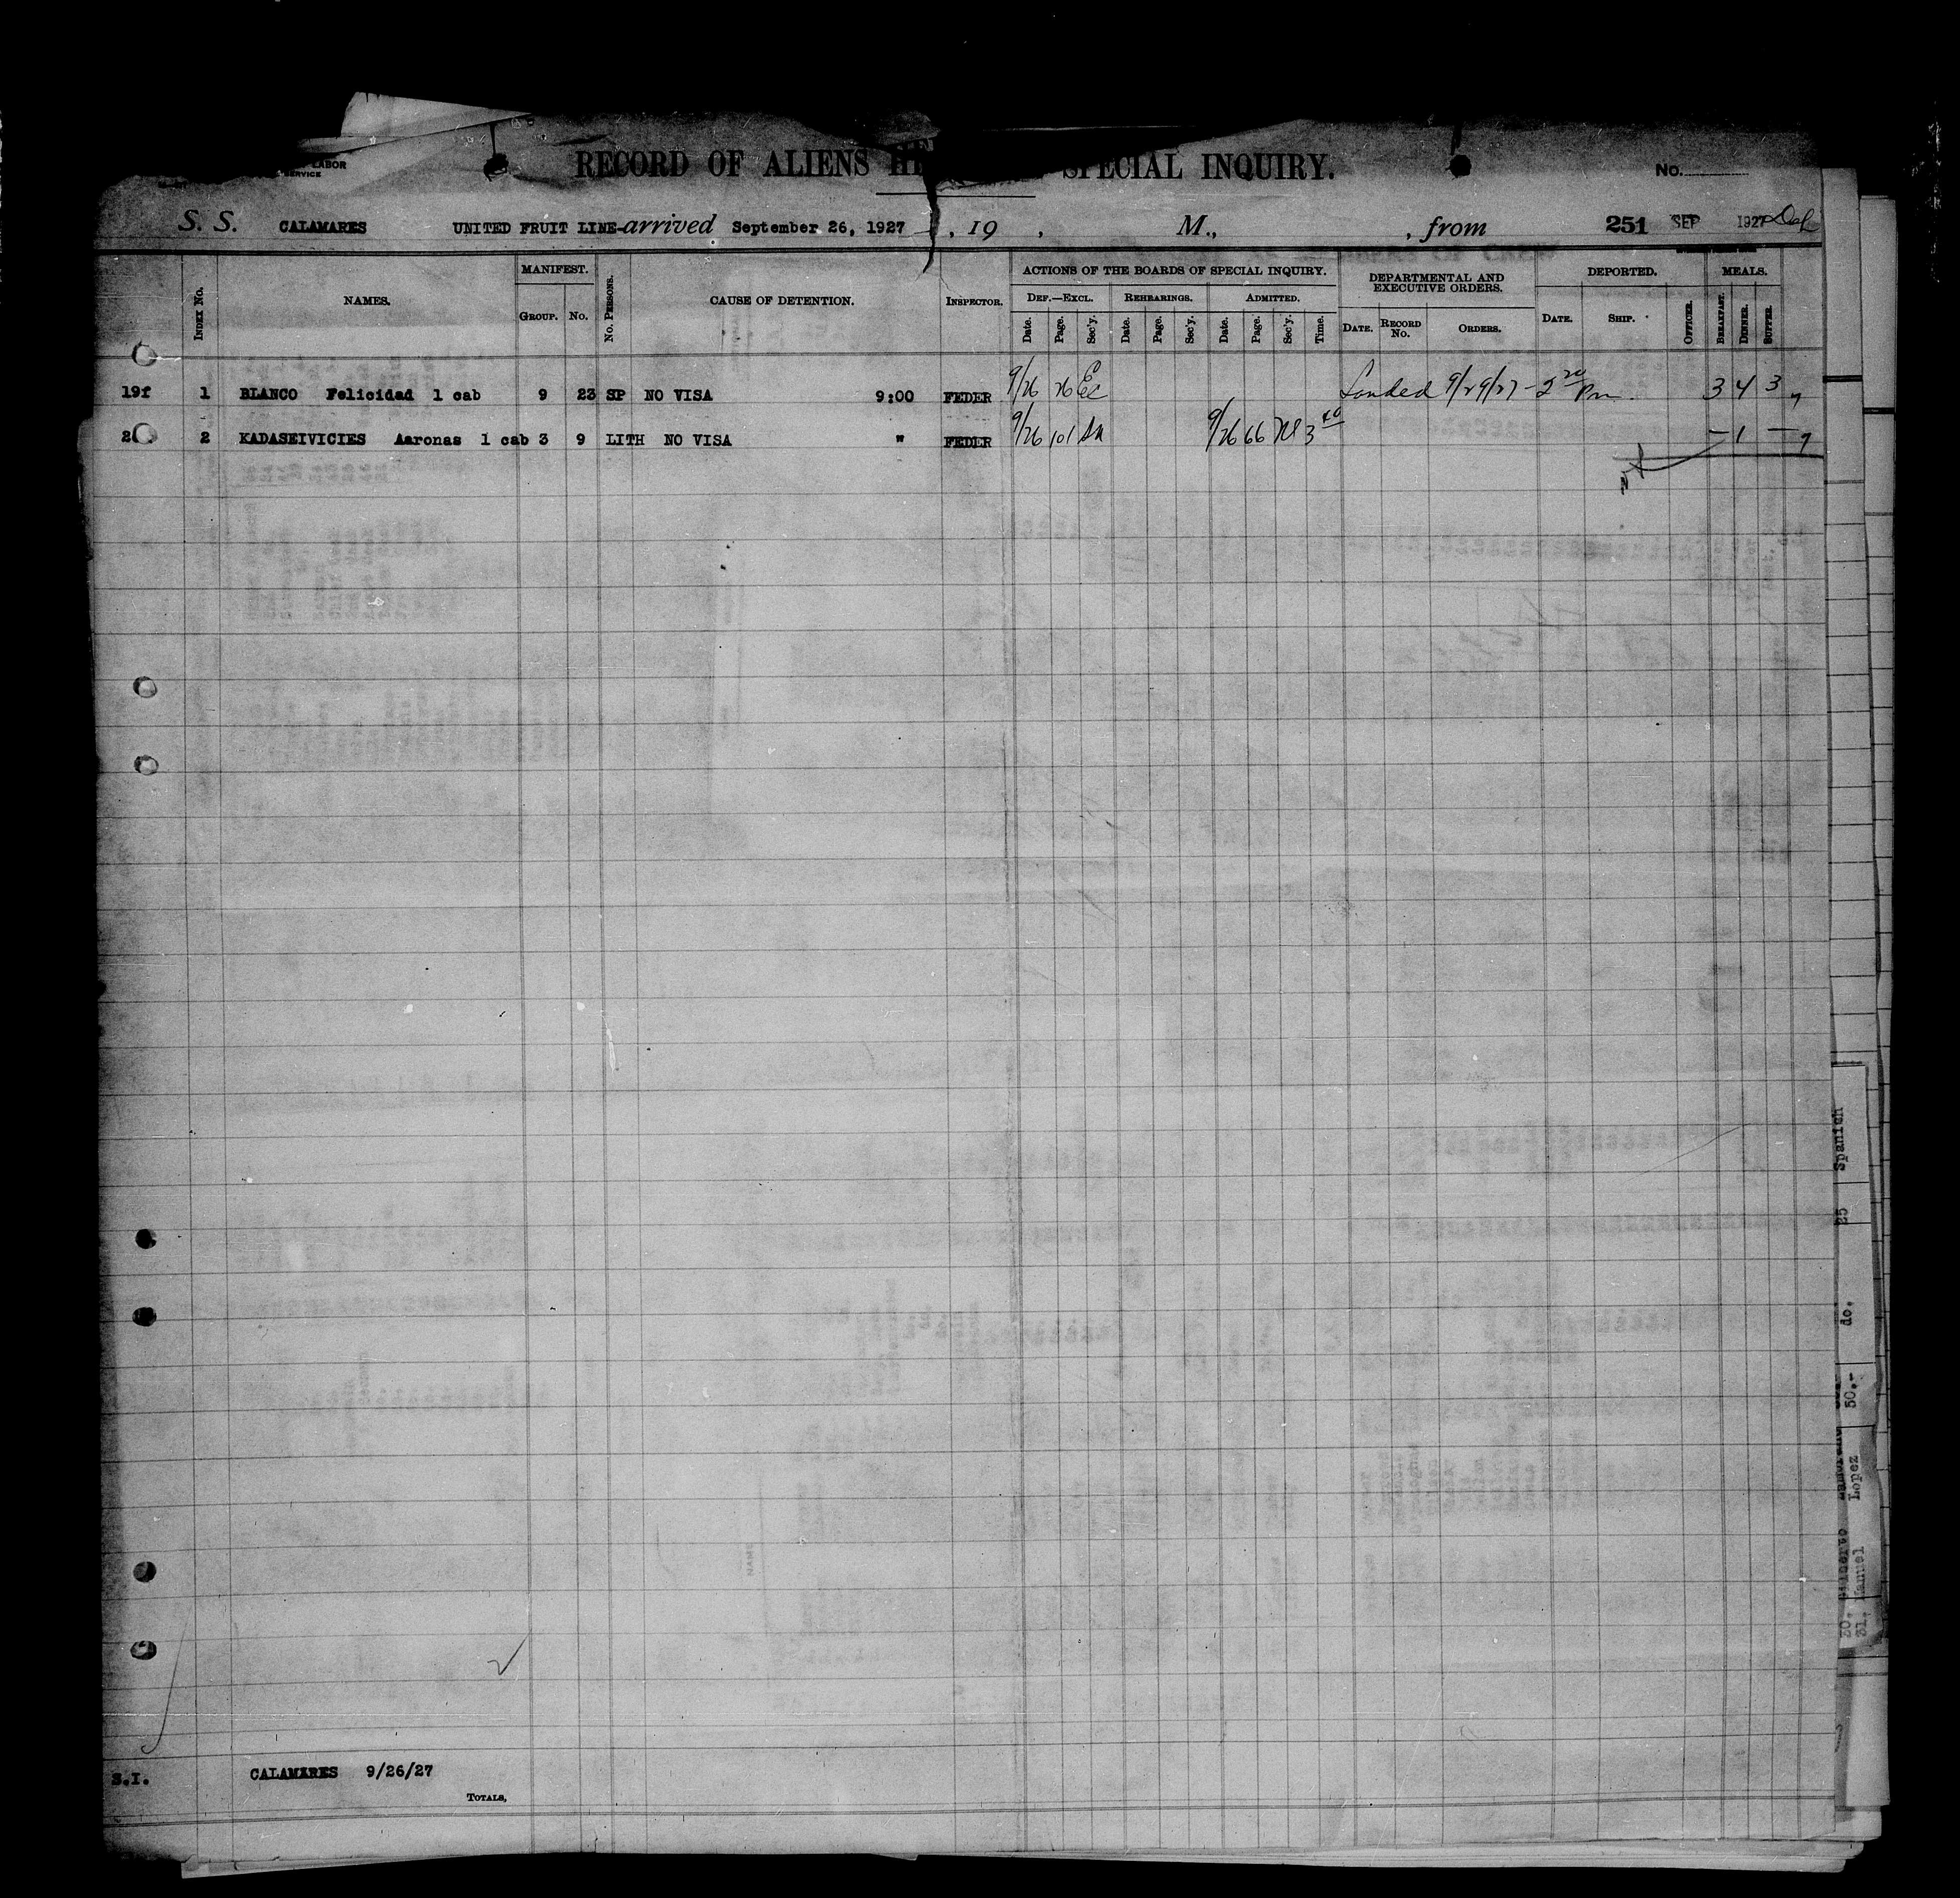 LABOR
SERVICE
RECORD OF ALIENS HE SPECIAL INQUIRY.
No.
S. S. CALAMARES UNITED FRUIT LINE-arrived September 26, 1927, 19 , M., , from 251 SEP 1927
MANIFEST. ACTIONS OF THE BOARDS OF SPECIAL INQUIRY. DEPARTMENTAL AND EXECUTIVE ORDERS. DEPORTED. MEALS.
DEF.—EXCL. REHEARINGS. ADMITTED.
INDEX No. NAMES. GROUP. No. No. PERSONS. CAUSE OF DETENTION. INSPECTOR. Date. Page. Sec'y. Date. Page. Sec'y. Date. Page. Sec'y. Time. DATE. RECORD No. ORDERS. DATE. SHIP. OFFICER. BREAKFAST. DINNER. SUPPER.
19f 1 BLANCO Felicidad 1 cab 9 23 SP NO VISA 9:00 FEDER 9/26 76 Ec Landed 9/29/27 - 2 20 Pm. 3 4 3
2 2 KADASEIVICIES Aaronas 1 cab 3 9 LITH NO VISA " FEDER 9/26 101 9/26 66 3 40 — 1 —
Spanish
25
do.
50.-
Lopez
31. Manuel
30.
S.I. CALAMARES 9/26/27
TOTALS,